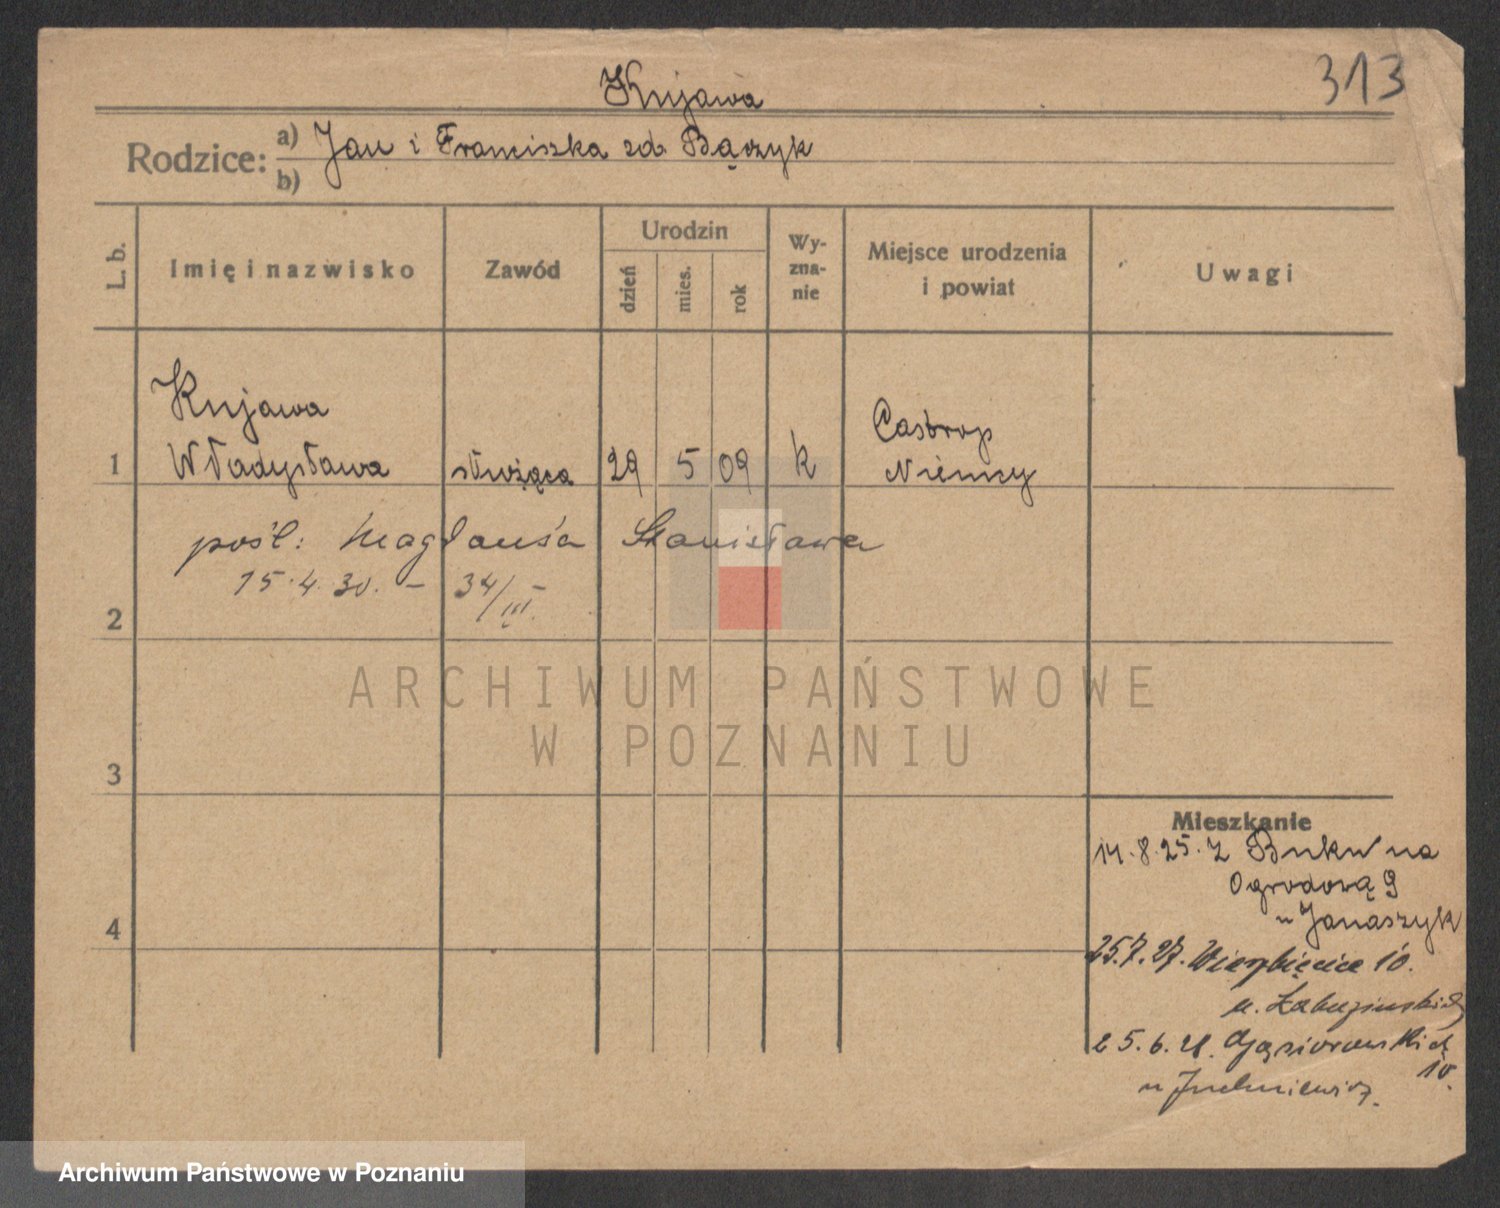 313
Kujawa
Rodzice: a) Jan i Franciszka zd. Bączyk
b)
L. b.
Imię i nazwisko
Zawód
Urodzin
dzień
mies.
rok
Wy-
zna-
nie
Miejsce urodzenia
i powiat
Uwagi
Kujawa
Castrop
1 Władysława służąca 29 5 09 k Niemcy
pośl: Stanisława
15.4.30. – 34/III.
2
3
4
ARCHIWUM PAŃSTWOWE
W POZNANIU
Mieszkanie
14.8.25. z Buku na
Ogrodową 9
u Janaszyk
25.7.27. Wierzbięcice 10.
u.
25.6.28. Gąsiorowskich
10.
u
Archiwum Państwowe w Poznaniu